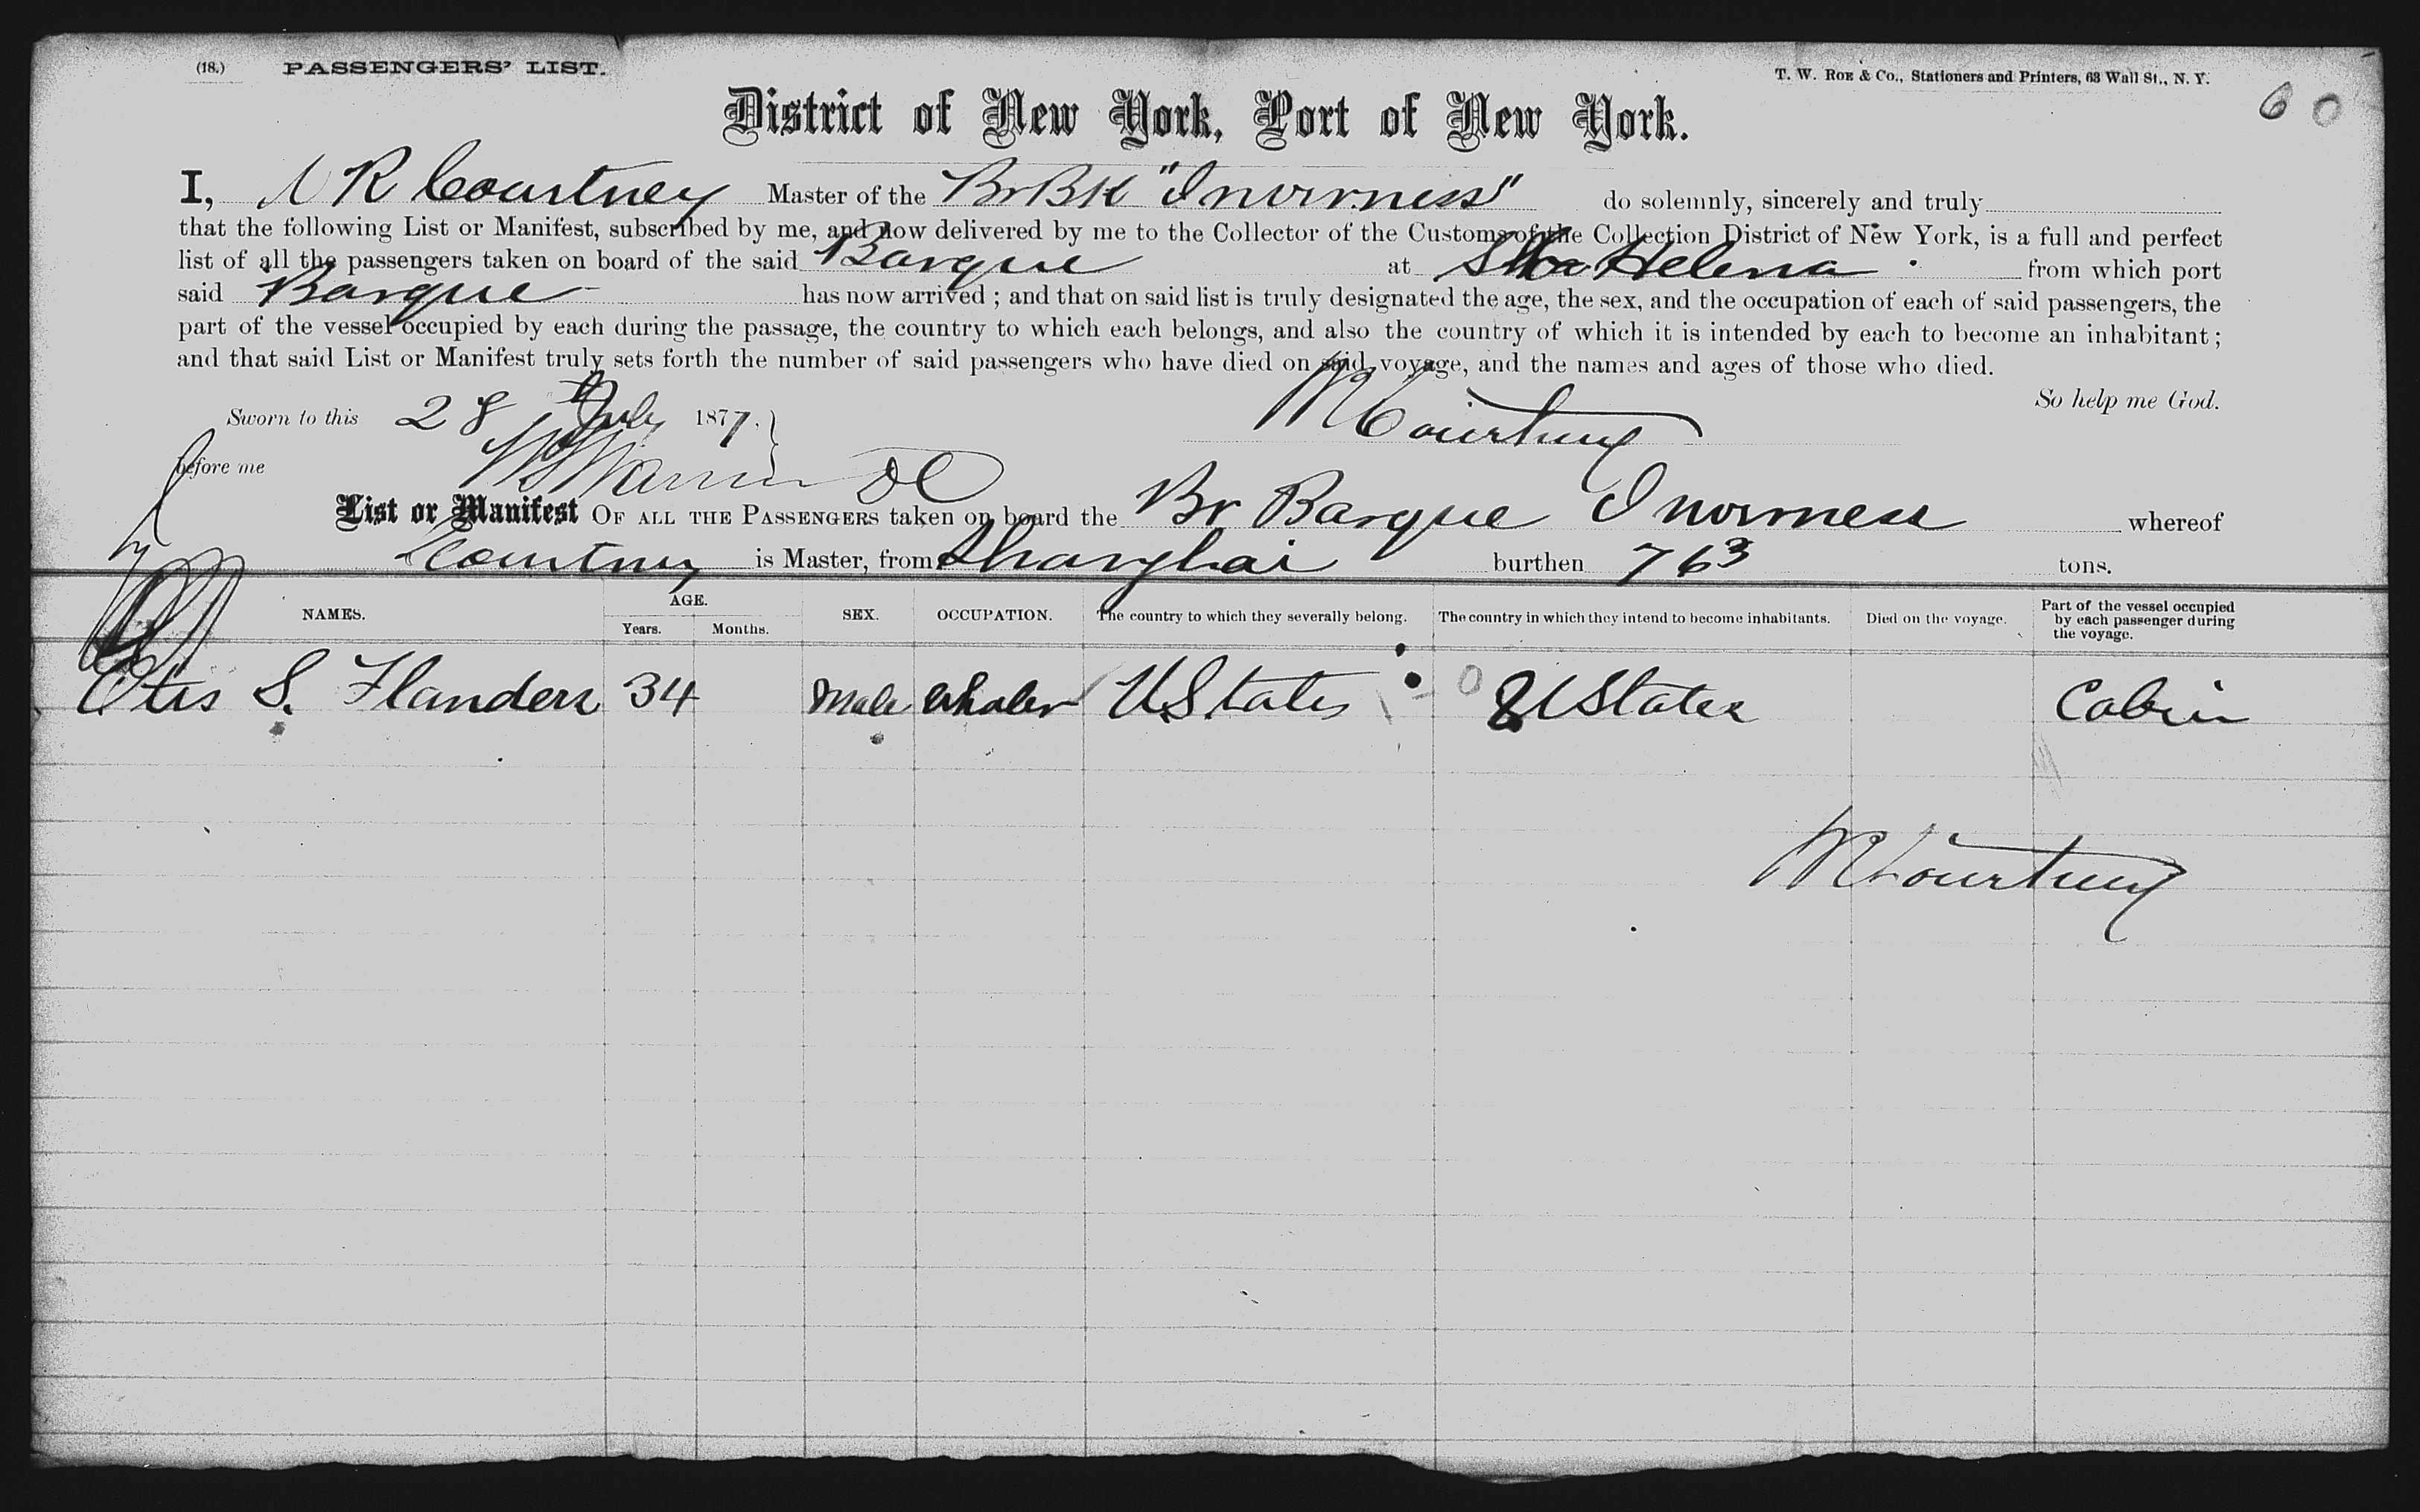 (18.) PASSENGERS' LIST. T. W. Roe & Co., Stationers and Printers, 63 Wall St., N. Y.
60
District of New York, Port of New York.
I, R Courtney Master of the Br Bk "Inverness" do solemnly, sincerely and truly
that the following List or Manifest, subscribed by me, and now delivered by me to the Collector of the Customs of the Collection District of New York, is a full and perfect
list of all the passengers taken on board of the said Barque at Helena from which port
said Barque has now arrived ; and that on said list is truly designated the age, the sex, and the occupation of each of said passengers, the
part of the vessel occupied by each during the passage, the country to which each belongs, and also the country of which it is intended by each to become an inhabitant ;
and that said List or Manifest truly sets forth the number of said passengers who have died on said voyage, and the names and ages of those who died.
So help me God.
Sworn to this 28th July 1877. Courtney
before me
List or Manifest OF ALL THE PASSENGERS taken on board the Br Barque Inverness whereof
Courtney is Master, from Shanghai burthen 763 tons.
NAMES. AGE. Years. Months. SEX. OCCUPATION. The country to which they severally belong. The country in which they intend to become inhabitants. Died on the voyage. Part of the vessel occupied by each passenger during the voyage.
Otis S. Flanders 34 Male Whaler U States 0 U States Cabin
Courtney